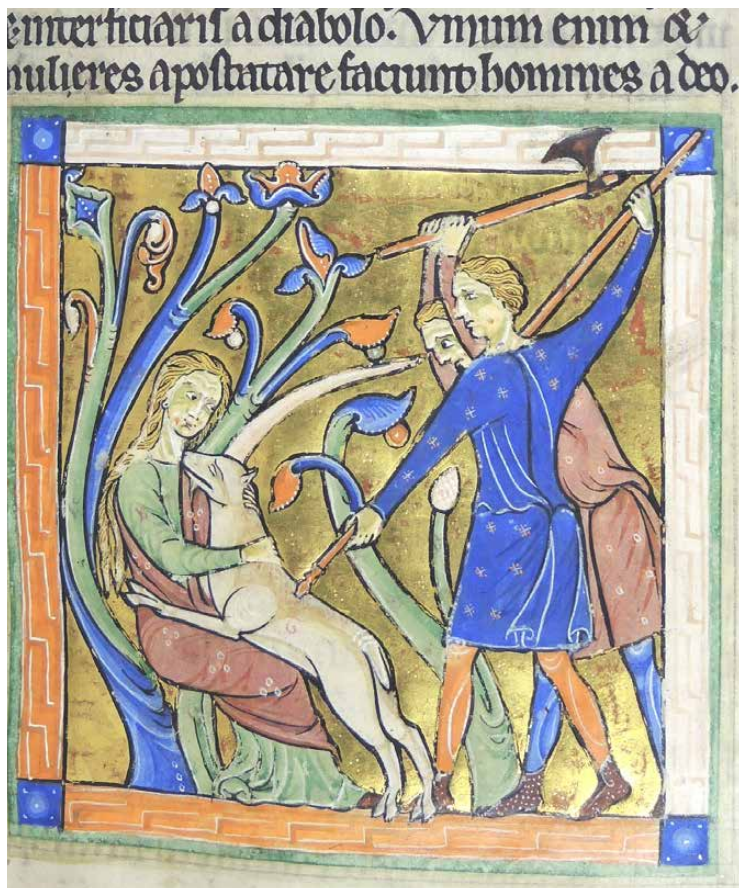 & interficiaris a diabolo. Vinum enim &
mulieres apostatare faciunt homines a deo.